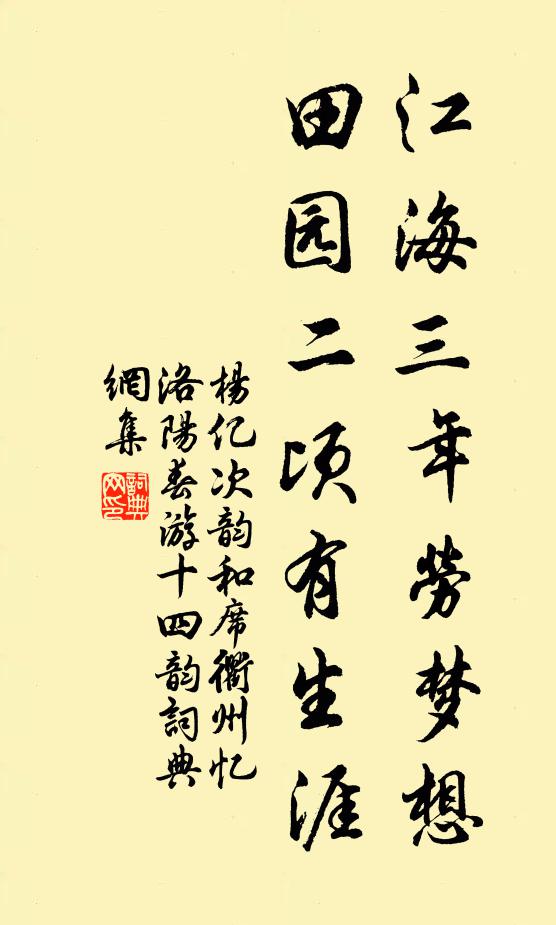 江海三年劳梦想
田园二顷有生涯
楊亿次韵和席衢州忆
洛陽春游十四韵詞典
網集
詞典网印